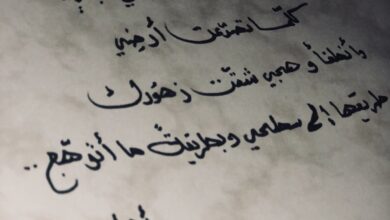 كلّما تصدّعت أرضي
وأنطفأ وهجي شقّت زهورك
طريقها إلى سطحي وبطريقةٍ ما أتوهّج ..